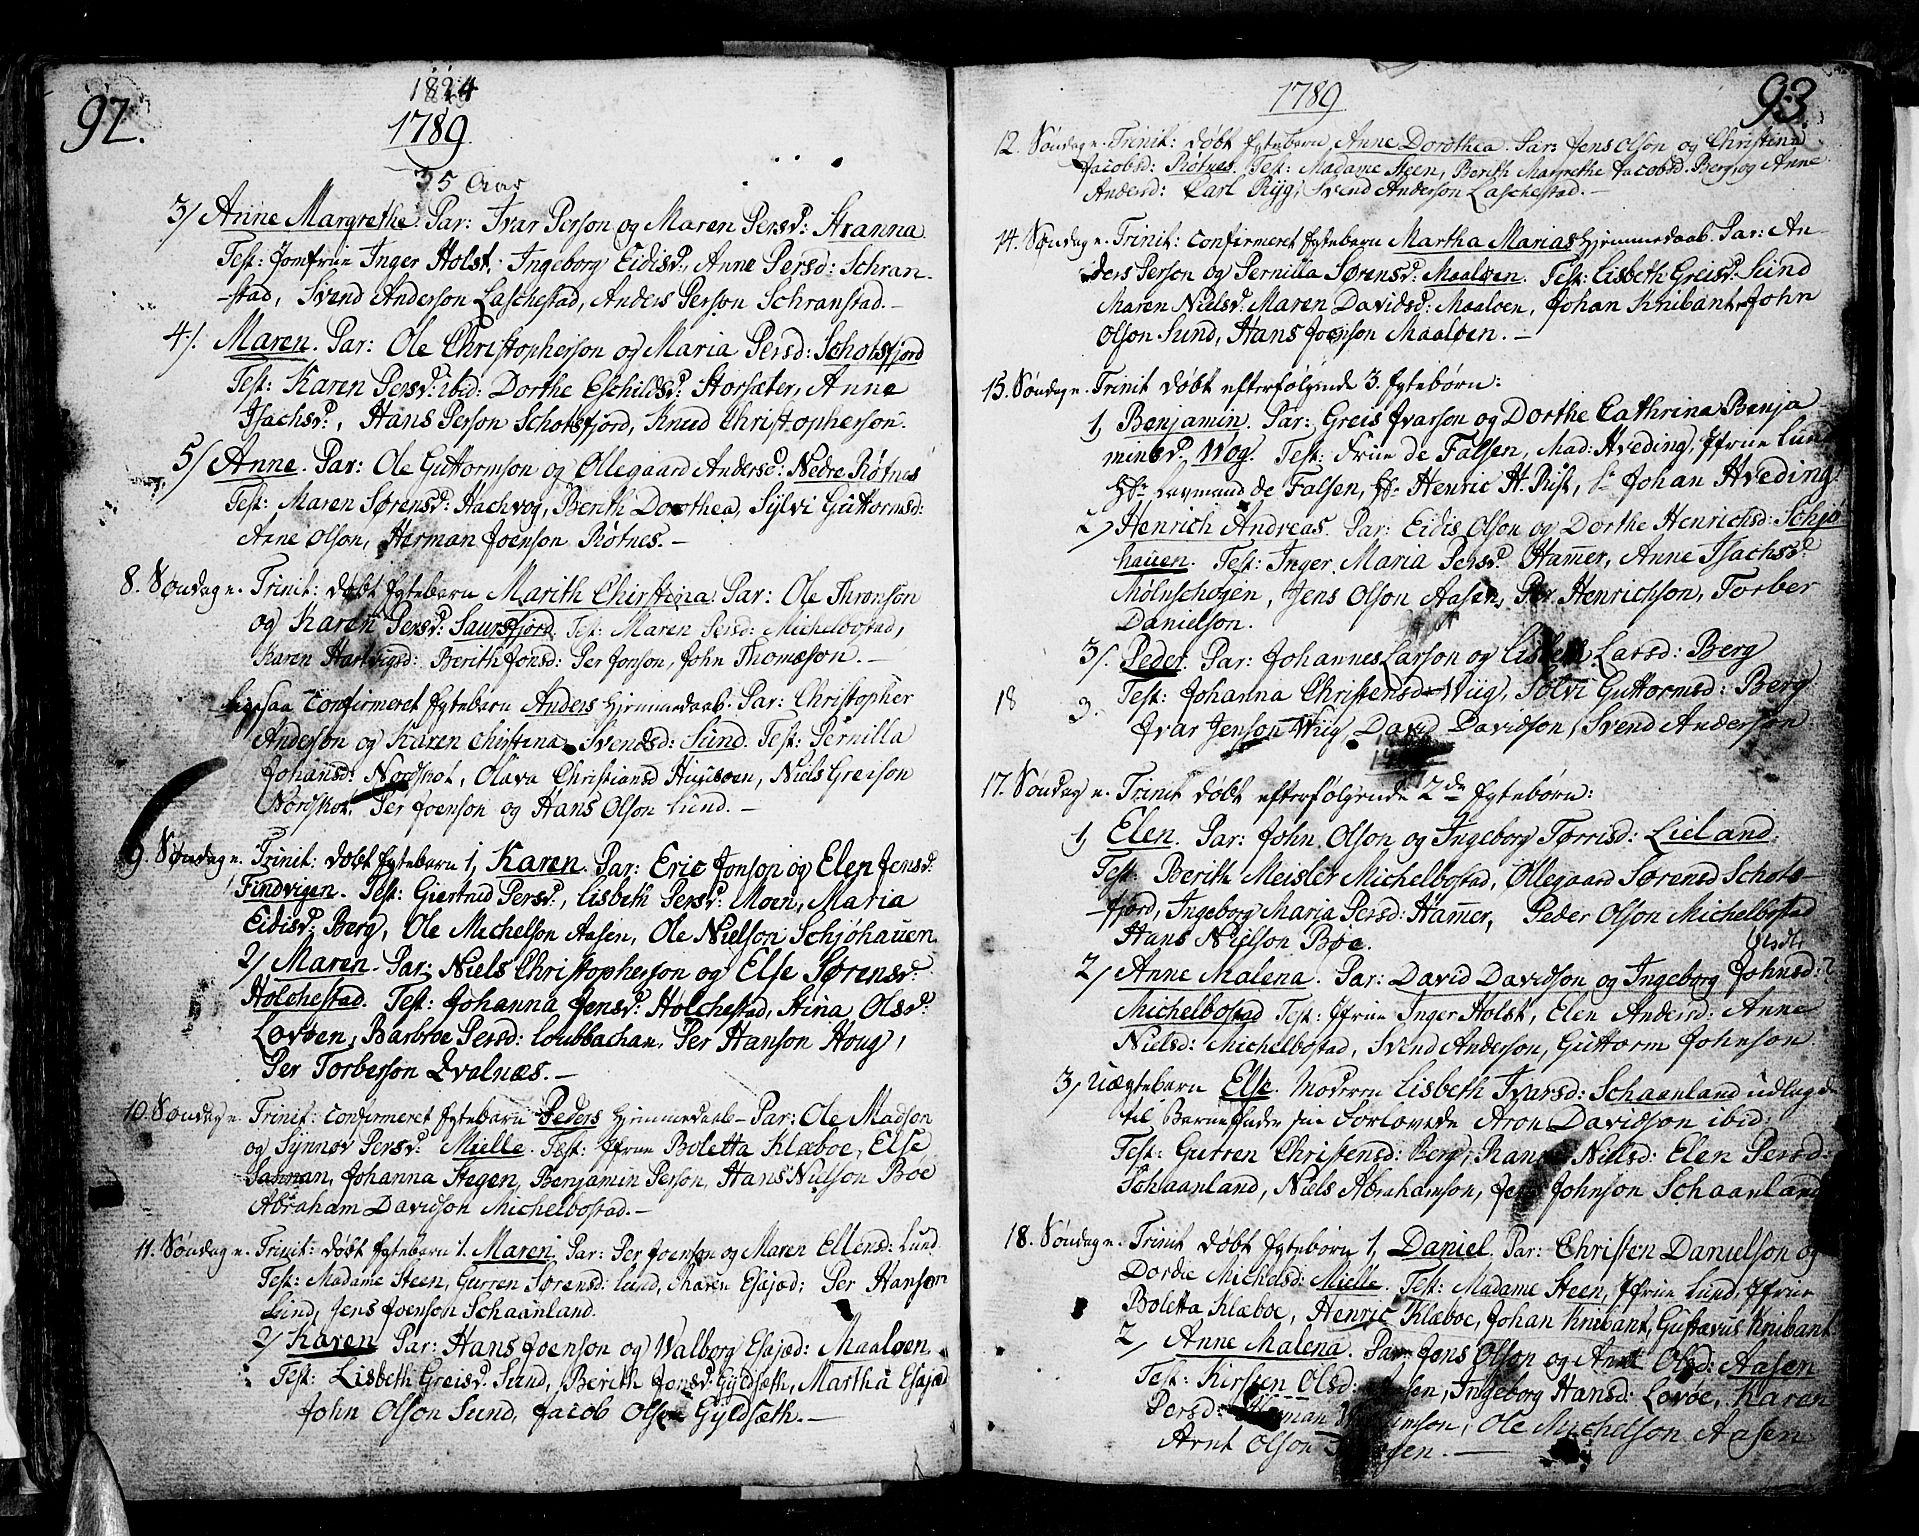 92.
1824
1789
35 Aar
3/ Anne Margrethe. Par: Ivar Person og Maren Persd: Stranna
Test: Jomfrue Inger Holst, Ingeborg Eidisd:, Anne Persd: Schran-
-stad, Svend Anderson Laschestad, Anders Person Schranstad.-
4/. Maren. Par: Ole Christopherson og Maria Persd: Schotsfjord
Test: Karen Persd: ibid: Dorthe Eschildsd: Storsæter, Anne
Isachsd:, Hans Person Schotsfjord, Knud Christopherson.
5/ Anne. Par: Ole Guttormson og Ollegaard Andersd: Nedre Røtnes
Test: Maren Sørensd: Hachvog, Berith Dorothea, Sylvi Guttormsd:
Arne Olson, Herman Joenson Røtnes.-
8. Søndag e. Trinit: døbt Ægtebarn Marith Chirstina. Par: Ole Thronson
og Karen Persd: Saursfjord. Test: Maren Persd: Michelbostad,
Karen Hartvigsd: Berith Jonsd: Per Jonson, John Thomæson.-
ligesaa Confirmeret Ægtebarn Anders Hjemmedaab. Par: Christopher
Anderson og Karen Chirstina Svendsd: Sund. Test: Pernilla
Johansd: Nordskot, Olava Christiansd Huusøen, Niels Greison
Nordskot, Per Joenson og Hans Olson Lund.-
9. Søndag e. Trinit: døbt Ægtebarn 1, Karen. Par: Eric Jonson og Elen Jensd:
Findvigen. Test: Giertrud Persd:, Lisbeth Persd: Moen, Maria
Eidisd: Berg, Ole Michelson Aasen, Ole Nielson Schjøhauen.
2/ Maren. Par: Niels Christopherson og Else Sørensd:
Holchestad. Test: Johanna Jensd: Holchestad, Stina Olsd:
Lovøen, Barbroe Persd: Loubbachan, Per Hanson Houg,
Per Torberson Qvalnæs.-
10. Søndag e. Trinit: Confirmeret Ægtebarn Peders Hjemmedaab- Par: Ole Madson
og Synnøv Persd: Mielle. Test: Jfrue Boletta Klæboe, Else
Sannan, Johanna Stegen, Benjamin Person, Hans Nielson Boe
Abraham Davidson Michelbostad.-
11. Søndag e. Trinit: døbt Ægtebarn 1. Maren. Par: Per Joenson og Maren Ellensd: Lund
Test: Madame Steen, Gurren Sørensd: Lund, Maren Esajæd: Per Hanson
Lund, Jens Joenson Schaanland.
2/ Karen Par: Hans Joenson og Walborg Esajæd: Maaløen.
Test: Lisbeth Greisd: Sund, Berith Jonsd: Gyldsæth, Martha Esajæd
John Olson Sund, Jacob Olson Gyldsæth.-
93.
1789
12. Søndag e. Trinit: døbt Ægtebarn Anne Dorothea. Par: Jens Olson og Christina
Jacobsd: Røtnes. Test: Madame Steen, Berith Margrethe Jacobsd. Berg, og Anne
Andersd: Carl Ryg, Svend Anderson Laschestad.-
14. Søndag e. Trinit: Confirmeret Ægtebarn Martha Marias Hjemmedaab. Par: An-
ders Person og Pernilla Sørensd: Maaløen. Test: Lisbeth Greisd: Sund
Maren Nielsd: Maren Davidsd: Maaløen, Johan Knibant, John
Olson Sund, Hans Joenson Maaløen.-
15. Søndag e. Trinit døbt efterfølgende 3. Ægtebørn:
1, Benjamin. Par: Greis Ivarson og Dorthe Cathrina Benja
minsd: Wog. Test: Frue de Falsen, Mad: Hveding, Jfrue Lund
de Falsen, Hr: Henric H. Rist, Sr Johan Hveding.
2, Henrich Andreas. Par: Eidis Olson og Dorthe Henrichsd: Schjø
hauen. Test: Inger Maria Persd: Hamer, Anne Isachsd:
Mølnschogen, Jens Olson Aasen, Per Henrichson, Torber
Danielson.
3/. Peder. Par: Johannes Larson og Lisbeth Larsd: Berg
18 3. Test: Johanna Christensd Wiig, Sølvi Guttormsd: Berg
Ivar Jenson Wiig, David Davidson, Svend Anderson
17. Søndag e. Trinit døbt efterfølgende 2de Ægtebørn:
1, Elen. Par: John Olson og Ingeborg Torrisd: Lieland:
Test: Berith Meisler Michelbostad, Ollegaard Sørensd Schots-
-fjord, Ingeborg Maria Persd: Hamer, Peder Olson Michelbostad
Hans Nielson Boe.
2/ Anne Malena. Par: David Davidson og Ingeborg Johnsd:
Michelbostad Test: Jfrue Inger Holst, Elen Andersd: Anne
Nielsd: Michelbostad, Svend Anderson, Guttorm Johnson
3, Uægtebarn Else. Moderen Lisbeth Ivarsd: Schaanland udlagde
til Barnefader sin Forlovede Aron Davidson ibid:
Test: Gurren Christensd: Berg, Karen Nielsd: Elen Persd:
Schaanland, Niels Abrahamson, Jens Johnson Schaanland
18. Søndag e. Trinit døbt Ægtebørn 1, Daniel. Par: Christen Danielson og
Dordie Michelsd: Mielle. Test: Madame Steen, Jfrue Lund, Jfrue
Boletta Klæboe, Henric Klæboe, Johan Knibant, Gustavus Knibant.
2, Anne Malena. Par: Jons Olson og Anne Olsd: Aasen
Test: Kirsten Olsd: Aasen, Ingeborg Hansd: Lovøe, Karen
Persd: Ole Michelson Aasen
Arnt Olson